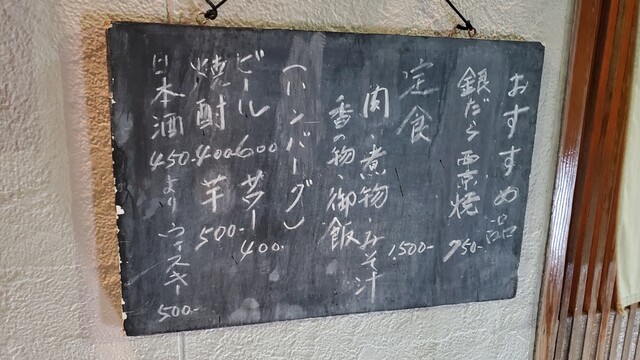 おすすめ品
銀だら西京焼 750-
定食 1,500-
肉・煮物・みそ汁
香の物・御飯
(ハンバーグ)
ビール 600 サワー 400.
焼酎 400 芋 500-
日本酒 450.より・ウィスキー 500-